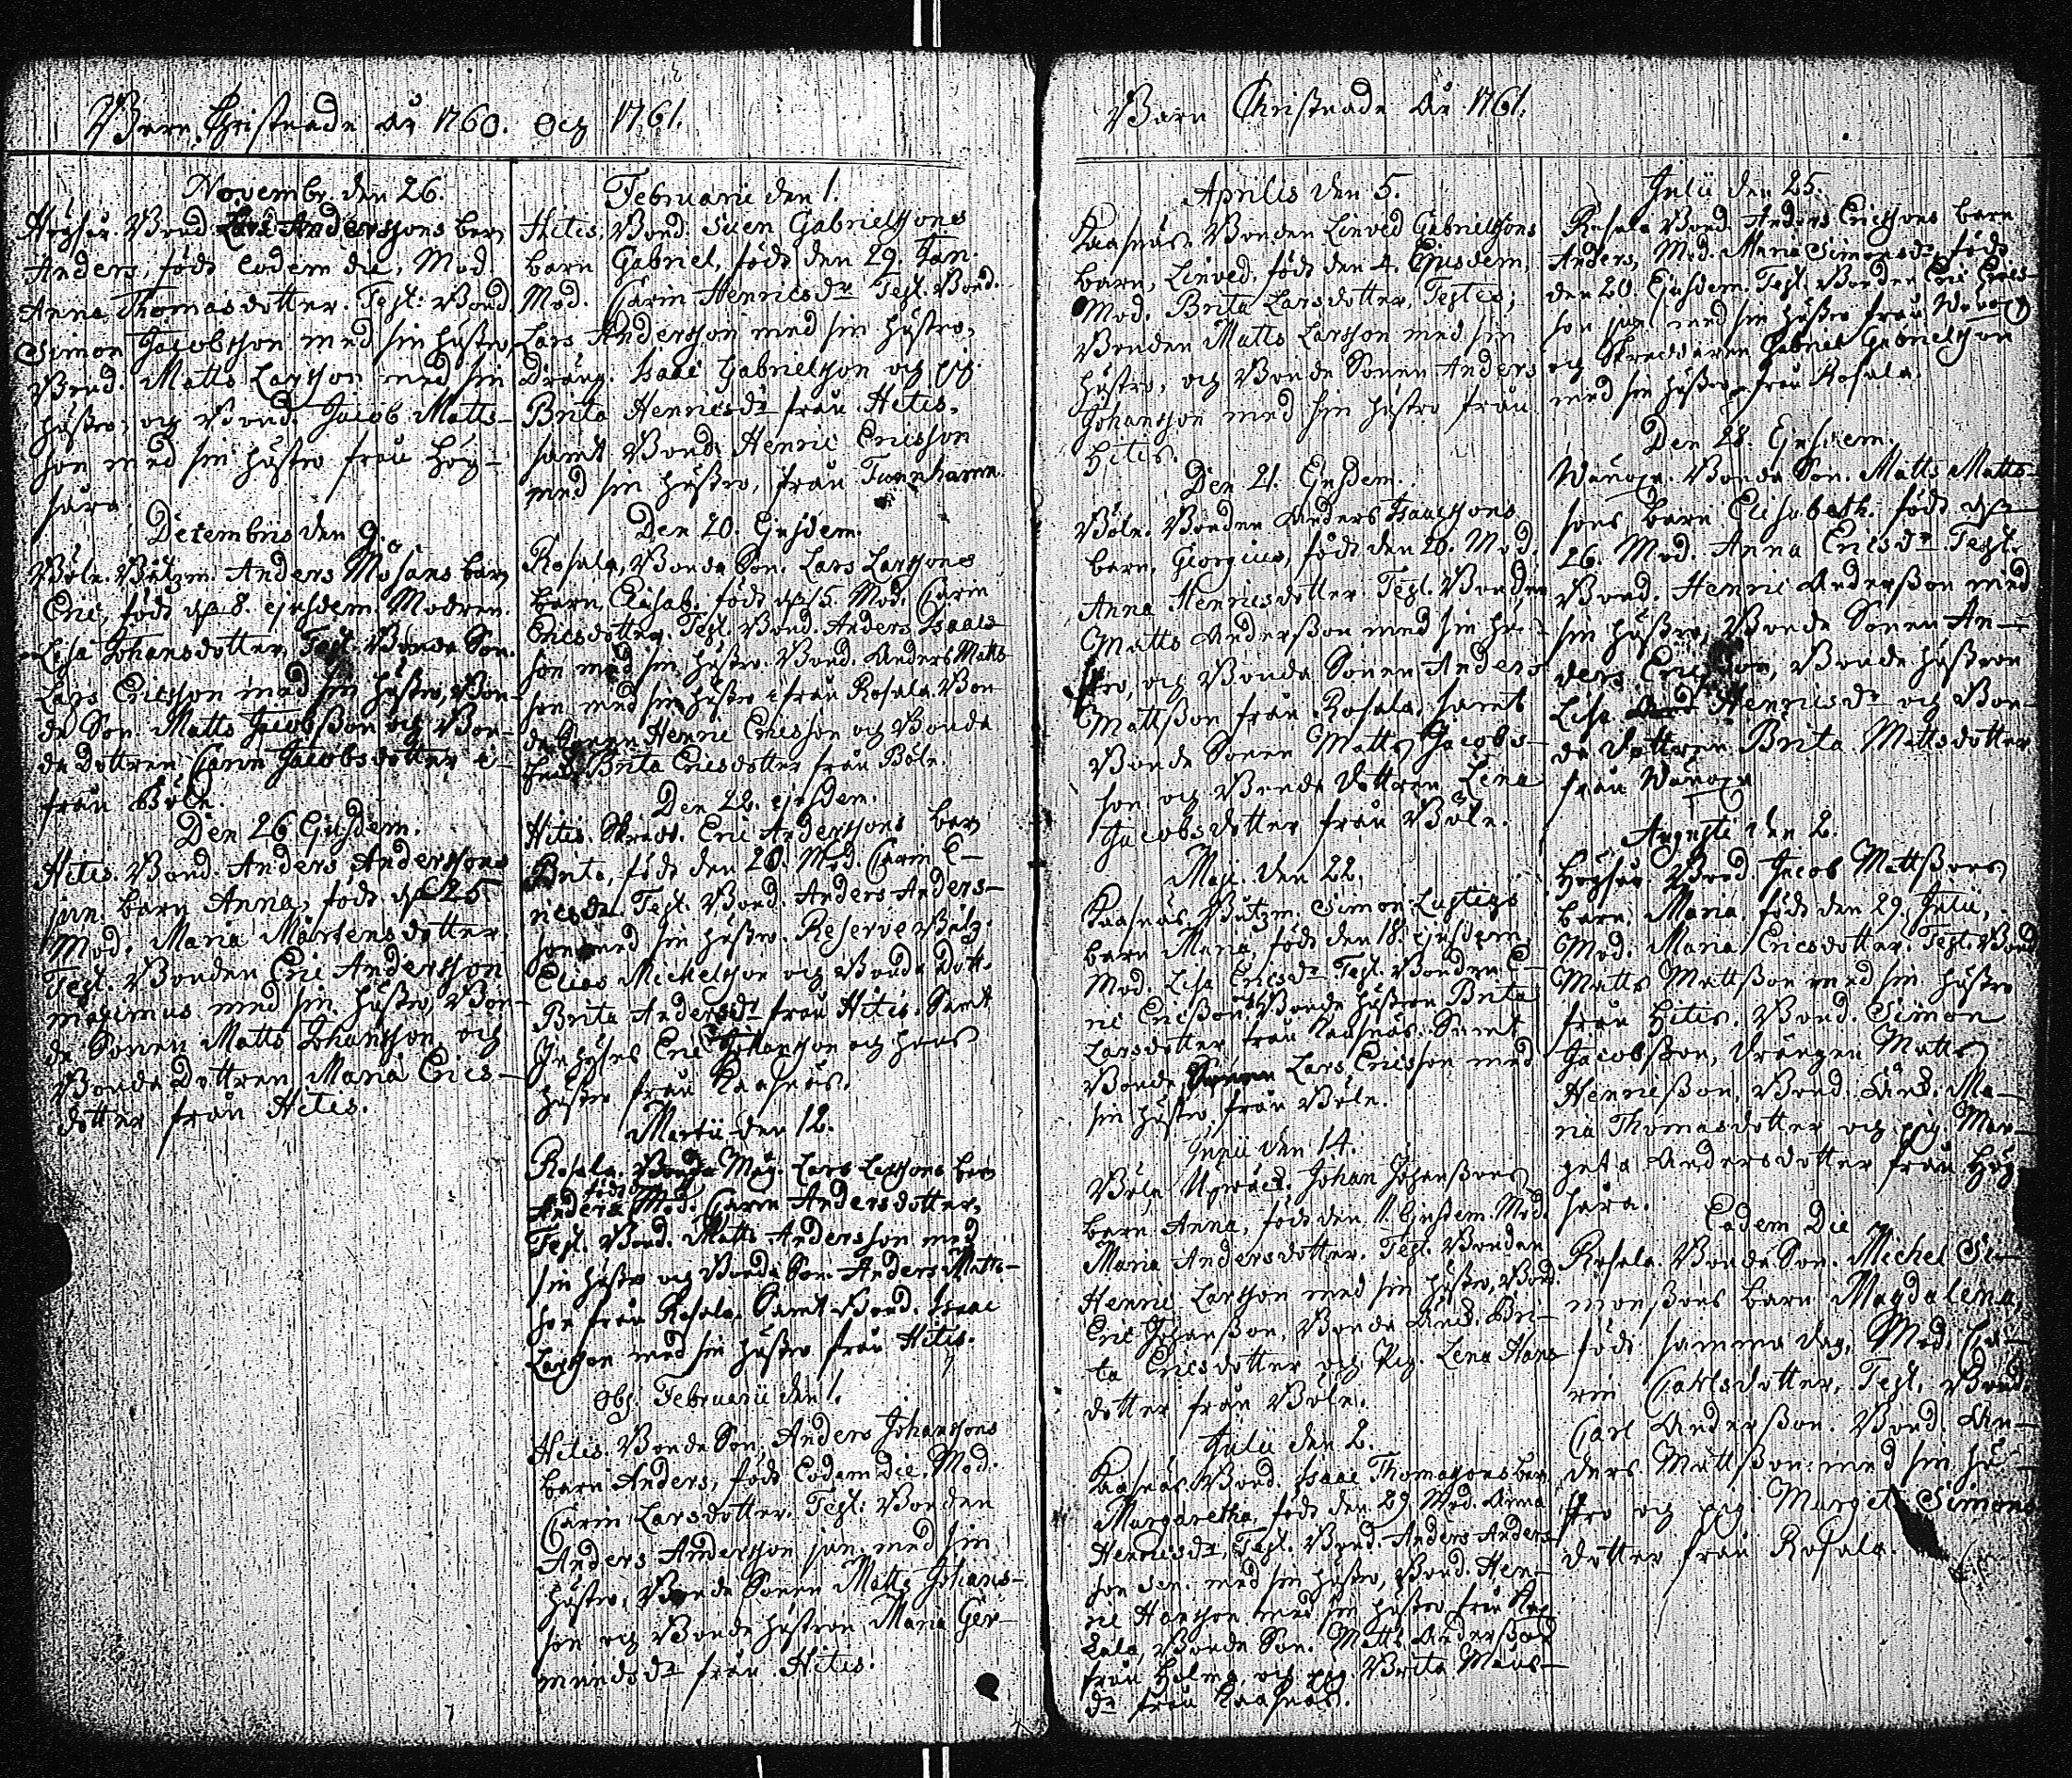 Barn Christnade År 1760. och 1761.
Novembr. den 26.
Högsar. Bond. Lars Anderssons barn
Anders, född eodem die, Mod.
Anna Thomasdotter. Test: Bond.
Simon Jacobsson med sin hustro,
Bond. Matts Larsson med sin
hustro, och Bond. Jacob Matts-
son med sin hustro från Hög-
sara.
Decembris den 9.
Böle. Båtzm. Anders Mosans barn
Eric, född d. 8. ejusdem. Modren.
Lisa Johansdotter, Test. Bonde Son.
Lars Ericsson med sin hustro, Bon-
de Son. Matts Jacobsson och Bon-
de Dottren Carin Jacobsdotter
från Böle.
Den 26 Ejusdem.
Hitis. Bond. Anders Anderssons
jun. barn Anna, född d. 25
Mod. Maria Mårtensdotter.
Test. Bonden Eric Andersson
maximus med sin hustro, Bon-
de Sonen Matts Johansson, och
Bonde Dottren Maria Erics-
dotter från Hitis.
Februarii den 1.
Hitis, Bond. Suen Gabrielssons
barn Gabriel, född den 29. Jan.
Mod. Carin Henricsdr. Test. Bond.
Lars Andersson med sin hustro,
Dräng. Isaac Gabrielsson och pig.
Brita Henricsdr från Hitis,
samt Bond. Henric Ericsson
med sin hustro, från Tunnhamn.
Den 20. Ejusdem.
Rosala, Bonde Son. Lars Larssons
barn Elisab. född d. 15. Mod. Carin
Ericsdotter. Test. Bond. Anders Isaacs-
son med sin hustro. Bond. Anders Matts-
son med sin hustro från Rosala. Bon-
de Sonen Henric Ericsson och Bonde
Brita Ericsdotter från Böle.
Den 22. ejusdem.
Hitis. Skredd. Eric Anderssons barn
Brita, född den 20. Mod. Carin E-
ricsdr. Test. Bond. Anders Anders-
son med sin hustro. Reserve Båtz.
Elias Michelsson och Bonde Dott.
Brita Andersdr från Hitis. Samt
Inhyses Eric Johansson och hans
hustro från Kasnäs.
Martii den 12.
Rosala. Bonde Måg. Lars Larssons barn
Anders född Mod. Carin Andersdotter,
Test. Bond. Matts Andersson med
sin hustro och Bonde Son. Anders Matts-
son från Rosala, Samt Bond. Isaac
Larsson med sin hustro från Hitis.
Obs. Februarii den 1.
Hitis. Bonde Son, Anders Johanssons
barn Anders, född Eodem die. Mod.
Carin Larsdotter. Test: Bonden
Anders Andersson jun. med sin
hustro, Bonde Sonen Matts Johans-
son och Bonde hustron Maria Ger-
mundsdr från Hitis.
Barn Christnade År 1761.
Aprilis den 5.
Kasnäs. Bonden Linved Gabrielssons
barn, Linved, född den 4. Ejusdem,
Mod. Brita Larsdotter, Testes;
Bonden Matts Larsson med sin
hustro, och Bonde Sonen Anders
Johansson med sin hustro från
Hitis.
Den 21. Ejusdem.
Böle. Bonden Anders Isaacssons
barn, Georgius, född den 20. Mod.
Anna Henricsdotter. Test. Bonden
Matts Andersson med sin hu-
stro, och Bonde Sonen Anders
Mattsson från Rosala, samt
Bonde Sonen Matts Jacobs-
son och Bonde dottren Lena
Jacobsdotter från Böle.
Maji den 22.
Kasnäs Båtzm. Simon Lustigs
barn Maria, född den 18. ejusdem,
Mod. Lisa Ericsdr Test. Bonden E-
ric Ericsson, Bonde hustron Brita
Larsdotter från Kasnäs. Samt
Bonde Sonen Lars Ericsson med
sin hustro, från Böle.
Junii den 14.
Böle Johan Johanssons
barn Anna, född den 11. Ejusdem. Mod.
Maria Andersdotter. Test. Bonden
Henric Larsson med sin hustro, Bond.
Eric Johansson, Bonde Bri-
ta Ericsdotter och Pig. Lena Hans-
dotter från Böle.
Julii den 2.
Kasnäs. Bond. Isaac Thomassons barn
Margaretha, född den 29. Mod. Anna
Henricsdr, Test. Bond. Anders Anders-
son sen. med sin hustro, Bond. Hen-
ric Hansson med sin hustro från
Bonde Son. Matts Andersson
från Holma, och pig. Brita Mans-
dr från Kasnäs.
Julii den 25.
Rosala Bond. Anders Ericssons barn
Anders, Mod. Maria Simonsdr, född
den 20. Ejusdem. Test. Bonden Eric Erics-
son jun med sin hustro från Wånoxa
och Skreddaren Gabriel Gabrielsson
med sin hustro från Rosala.
Den 28. Ejusdem.
Wånoxa. Bonde Son. Matts Matts-
sons barn Elisabeth, född d.
26. Mod. Anna Ericsdr. Test.
Bond. Henric Andersson med
sin hustro, Bonde Sonen An-
ders Ericsson, Bonde hustron
Lisa Henricsdr och Bon-
de dottren Brita Mattsdotter
från Wånoxa
Augusti den 2.
Högsar. Bond. Jacob Mattssons
barn, Maria, född den 29. Julii,
Mod. Maria Ericsdotter. Test. Bond.
Matts Mattsson med sin hustro
från Hitis. Bond. Simon
Jacobsson, Drängen Matts
Henricsson, Bond. Ma-
ria Thomasdotter och pig. Mar-
geta Andersdotter från Hög-
sara.
Eodem Die
Rosala. Bonde Son. Michel Si-
monssons barn Magdalena,
född samma dag, Mod. Ca-
rin Carlsdotter, Test. Bond.
Carl Andersson. Bond. An-
ders Mattsson med sin hu-
stro och pig Margeta Simons-
dotter från Rosala.